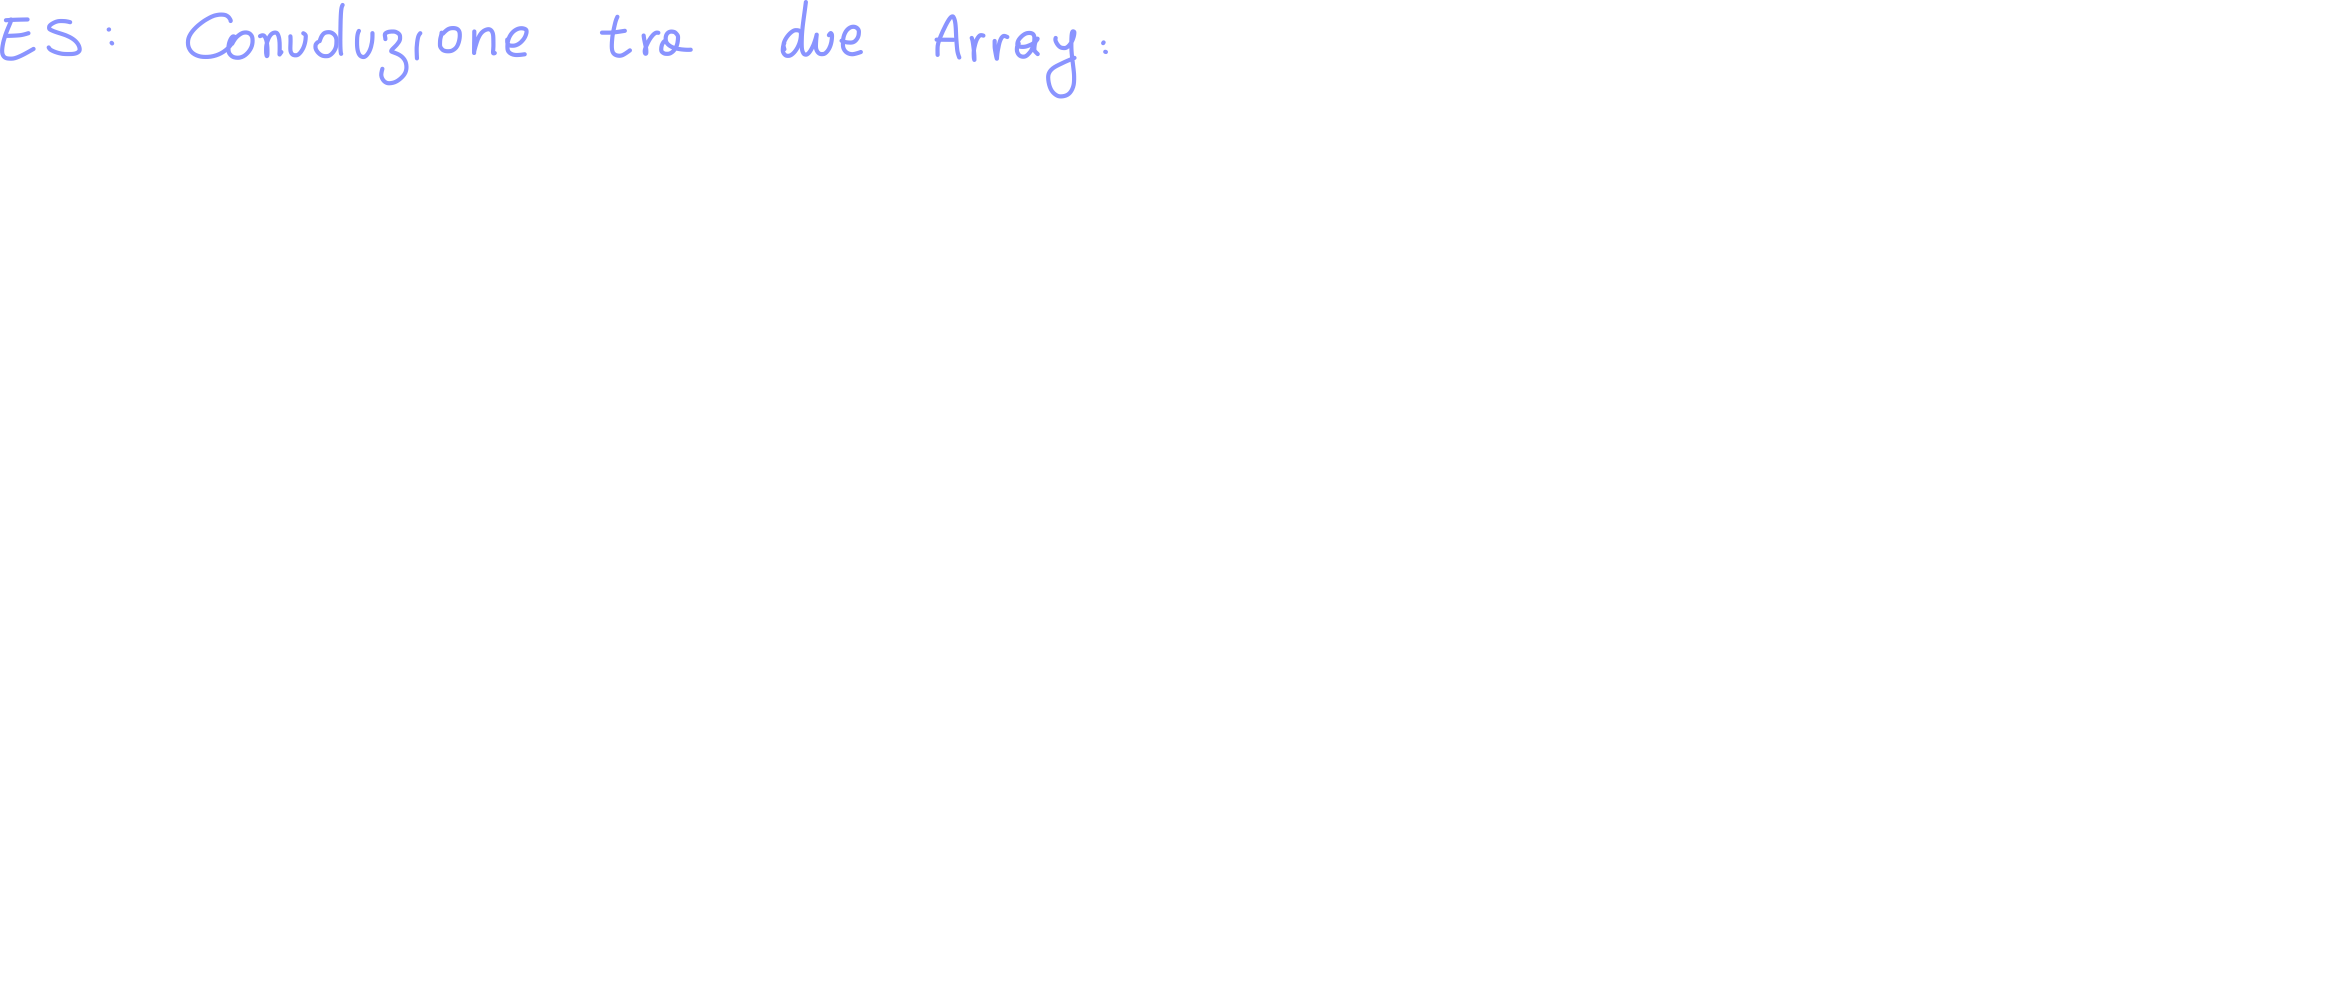 ES: Convoluzione tra due Array: